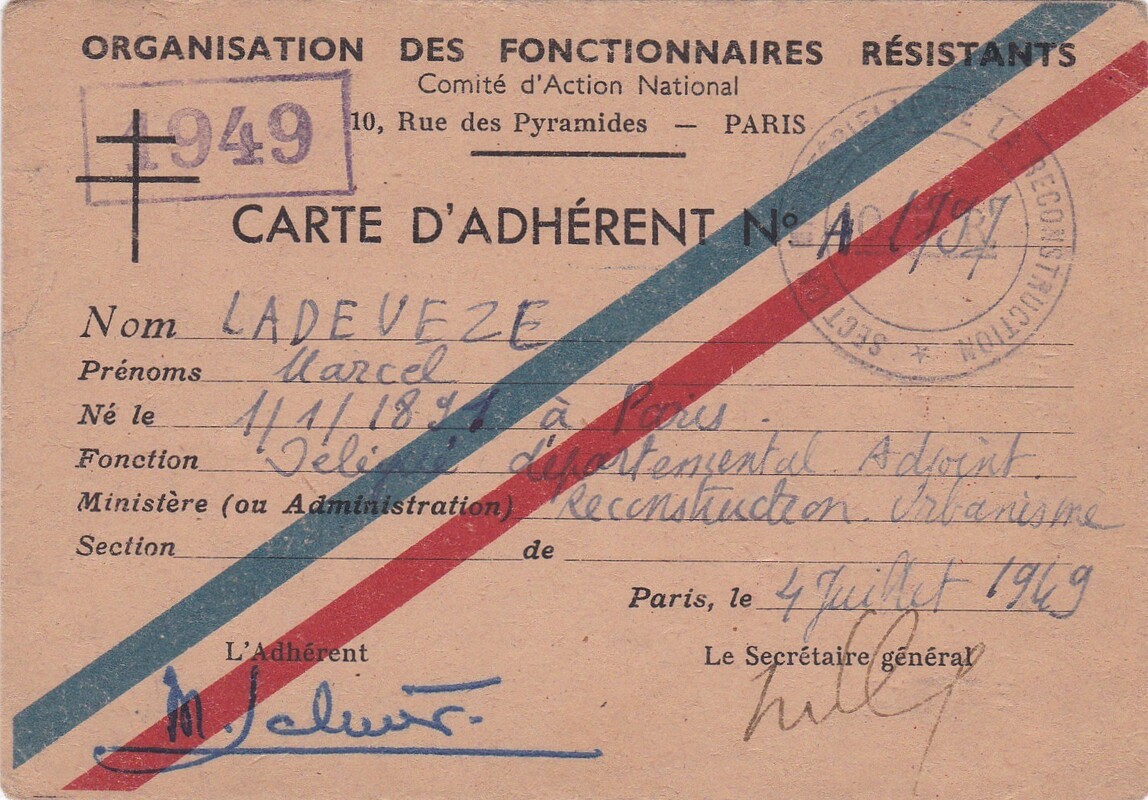 ORGANISATION DES FONCTIONNAIRES RÉSISTANTS
Comité d'Action National
1949
10, Rue des Pyramides — PARIS
CARTE D'ADHÉRENT N° A
RECONSTRUCTION * SECT
Nom LADEVEZE
Prénoms Marcel
Né le 1/1/1891 à Paris.
Fonction Délégué départemental Adjoint
Ministère (ou Administration) Reconstruction. Urbanisme
Section de
Paris, le 4 Juillet 1949
L'Adhérent Le Secrétaire général
M.